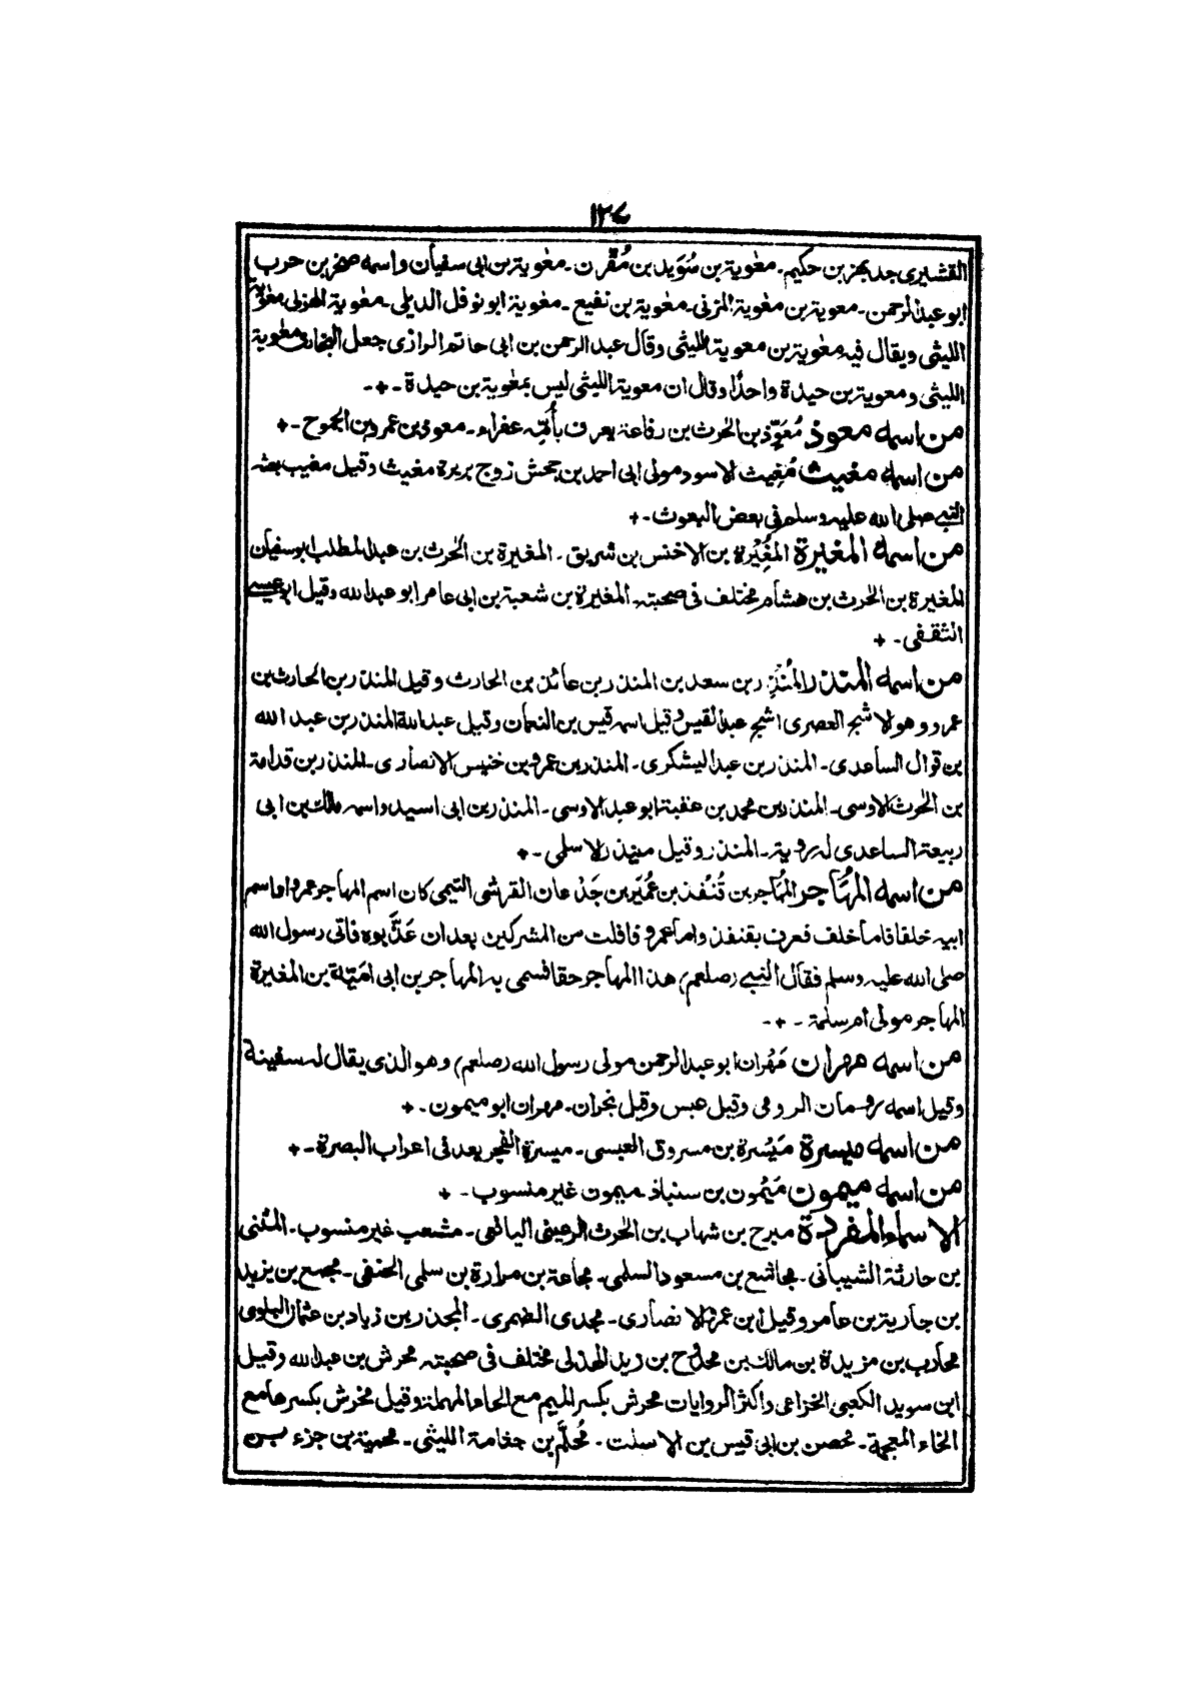 ١٢٧
القشيرى جد بهز بن حكيم ـ معٰوية بن سُوَيد بن مُقَرِّن ـ معٰوية بن ابى سفيان واسمه صخر بن حرب
ابو عبد الرحمن ـ معوية بن معٰوية المزنى ـ معٰوية بن نفيع ـ معٰوية ابو نوفل الديلى ـ معٰوية الهزلى معٰوية
الليثى ويقال فيه معٰوية بن معوية الليثى وقال عبد الرحمن بن ابى حاتم الرازى جعل البخارى معٰوية
الليثى ومعوية بن حيدة واحدًا وقال ان معوية الليثى ليس بمعٰوية بن حيدة ـ+ـ
من اسمه معوذ مُعَوِّذ بن الحٰرث بن رفاعة يعرف بأُمِّه عفراء ـ معوذ بن عمرو بن الجموح ـ+
من اسمه مغيث مُغِيث الاسود مولى ابى احمد بن جحش زوج بريرة مغيث وقيل مغيب بعثه
النبى صلى الله عليه وسلم فى بعض البعوث ـ+
من اسمه المغيرة المُغِيْرة بن الاخنس بن شريق ـ المغيرة بن الحٰرث بن عبد المطلب ابو سفيان
المغيرة بن الحٰرث بن هشام مختلف فى صحبته المغيرة بن شعبة بن ابى عامر ابو عبد الله وقيل ابو عيسى
الثقفى ـ+
من اسمه المنذر المُنْذِر بن سعد بن المنذر بن عائذ بن الحارث وقيل المنذر بن الحارث بن
عمرو وهو الاشج العصرى اشج عبد القيس وقيل اسمه قيس بن النعمان وقيل عبد الله المنذر بن عبد الله
بن قوال الساعدى ـ المنذر بن عبد اليشكرى ـ المنذر بن عمرو بن خنيس الانصارى ـ المنذر بن قدامة
بن الحٰرث الاوسى ـ المنذر بن محمد بن عقبة ابو عبد الاوسى ـ المنذر بن ابى اسيد واسمه مالك بن ابى
ربيعة الساعدى له روية ـ المنذر وقيل منيذر الاسلمى ـ+
من اسمه المهاجر المُهَاجر بن قُنْفذ بن عُمَيْر بن جَدْعان القرشى التيمى كان اسم المهاجر عمرو واسم
ابيه خلفا فاما خلف فعرف بقنفذ واما عمرو فافلت من المشركين بعد ان عَذَّبوه فاتى رسول الله
صلى الله عليه وسلم فقال النبى (صلعم) هذا المهاجر حقا فسمى به المهاجر بن ابى امَيّة بن المغيرة
المهاجر مولى ام سلمة ـ+ـ
من اسمه مهران مَهْران ابو عبد الرحمن مولى رسول الله (صلعم) وهو الذى يقال له سفينة
وقيل اسمه رومان الرومى وقيل عبس وقيل نجران ـ مهران ابو ميمون ـ+
من اسمه ميسرة مَيْسرة بن مسروق العبسى ـ ميسرة الفجر يعد فى اعراب البصرة ـ+
من اسمه ميمون مَيْمُون بن سنباذ ـ ميمون غير منسوب ـ+
الاسماء المفردة مبرح بن شهاب بن الحٰرث الرعينى اليافعى ـ مشعب غير منسوب ـ المثنى
بن حارثة الشيبانى ـ مجاشع بن مسعود السلمى ـ مجاعة بن مرارة بن سلمى الحنفى ـ مجمع بن يزيد
بن جارية بن عامر وقيل ابن عمرو الانصارى ـ مجدى الضمرى ـ المجذر بن زياد بن عثمان البلوى
محارب بن مزيدة بن مالك بن بن زيد الهذلى مختلف فى صحبته محرش بن عبد الله وقيل
ابن سويد الكعبى الخزاعى واكثر الروايات محرش بكسر الميم مع الحاء المهملة وقيل مخرش بكسرها مع
الخاء المعجمة ـ محصن بن ابى قيس بن الاسلت ـ مُحلِّم بن جثامة الليثى ـ محمية بن جزء بن